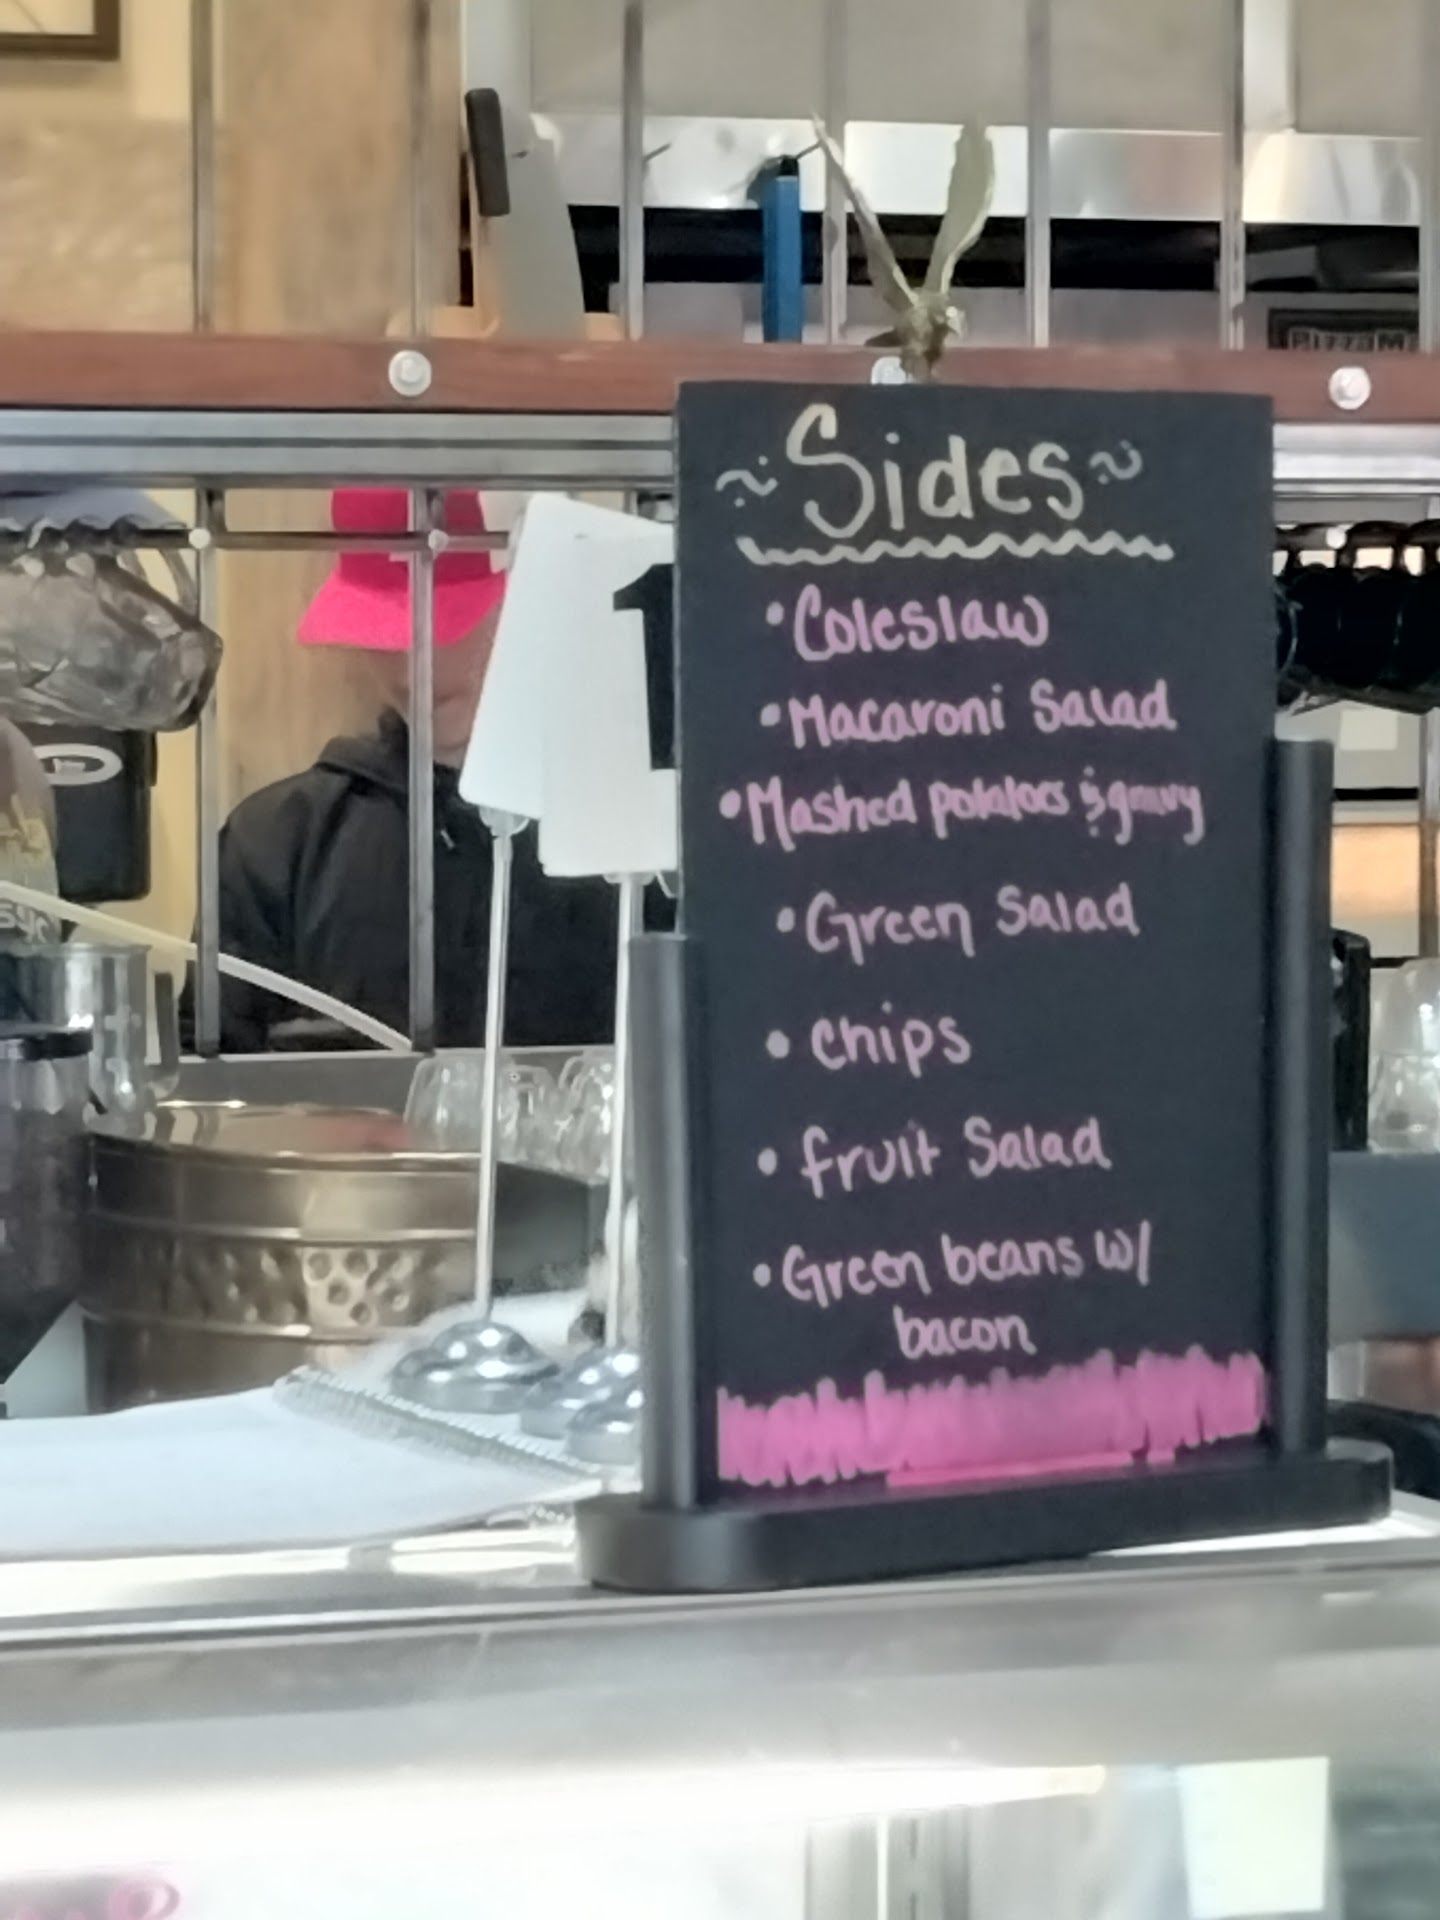 ~ Sides ~
• Coleslaw
• Macaroni Salad
• Mashed potatoes & gravy
• Green Salad
• chips
• fruit Salad
• Green beans w/
bacon
1